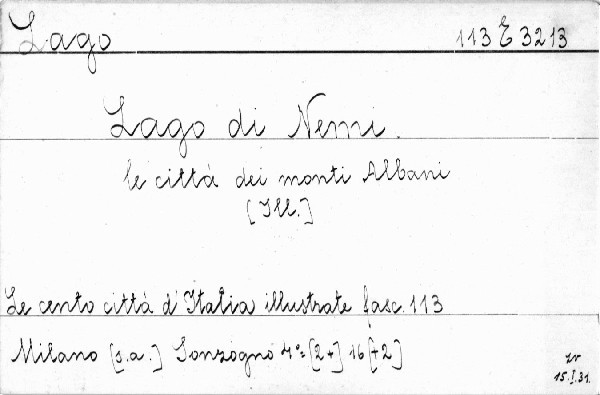 Lago 113 E 3213
Lago di Nemi.
le cittá dei monti Albani
[Ill.]
Le cento cittá d'Italia illustrate fasc. 113
Milano [s.a.] Sonzogno 4° [2+] 16 [+2]
15.I.31.